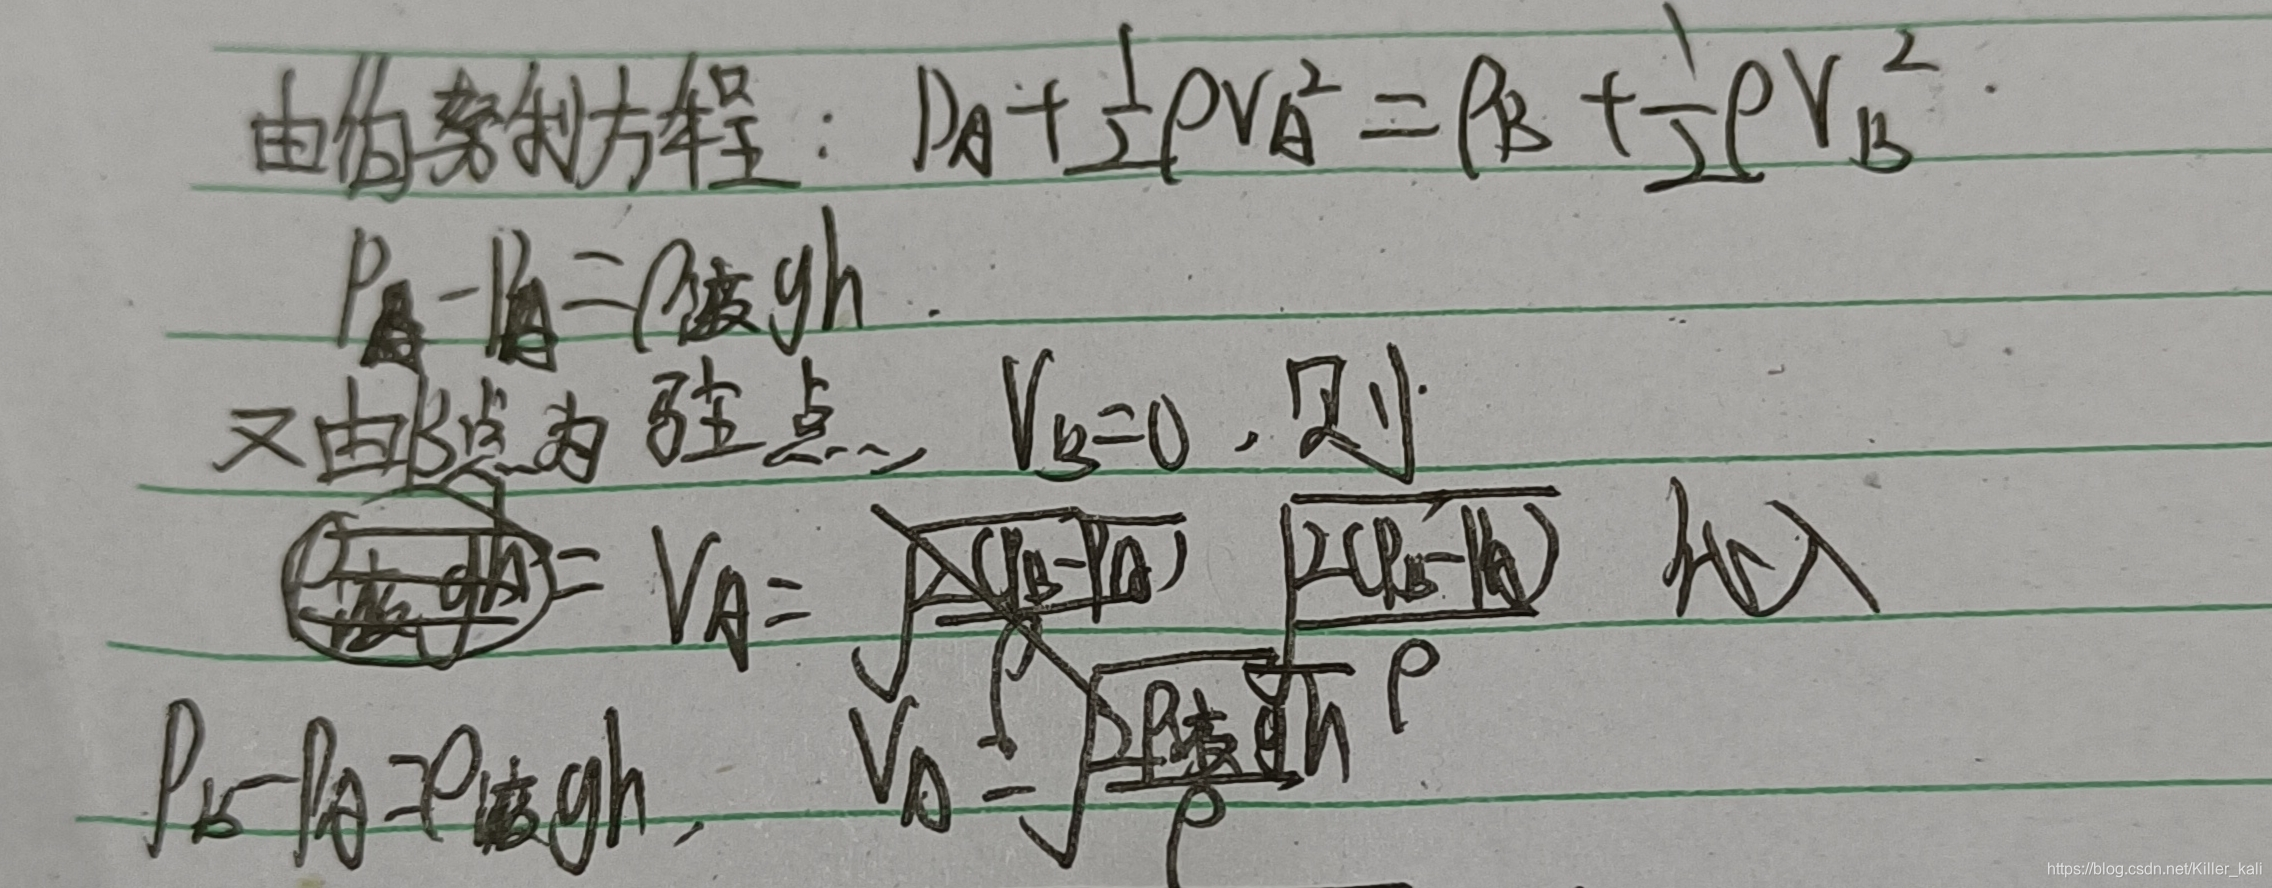 由伯努利方程: P_A + \frac{1}{2}ρV_A^2 = P_B + \frac{1}{2}ρV_B^2.
P_B - P_A = ρ_液 gh.
又由B点为驻点, V_B = 0, 则
V_A = \sqrt{\frac{2(P_B - P_A)}{ρ}} 代入
P_B - P_A = ρ_液 gh, V_A = \sqrt{\frac{2ρ_液 gh}{ρ}}
https://blog.csdn.net/Killer_kali